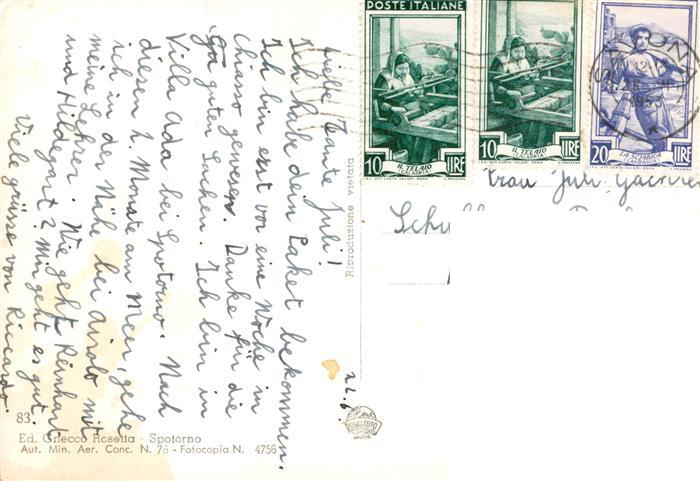 Liebe Tante Juli!
Ich habe dein Paket bekommen.
Ich bin erst vor eine Woche in
Chiasso gewesen. Danke für die
guten Sachen. Ich bin in
Villa Ada bei Spotorno. Nach
diesen 2. Monate am Meer, gehe
ich in der Nähe bei Airolo mit
meine Lehrer. Wie geht Reinhart
und Hildegart? Mir geht es gut.
Viele grüsse von Riccardo.
22.6.
83
Ed. Griecco Rosetta - Spotorno
Aut. Min. Aer. Conc. N. 76 - Fotocopia N. 4756
Riproduzione vietata
POSTE ITALIANE
10 IL TELAIO LIRE
10 IL TELAIO LIRE
20 LIRE
Frau Juli